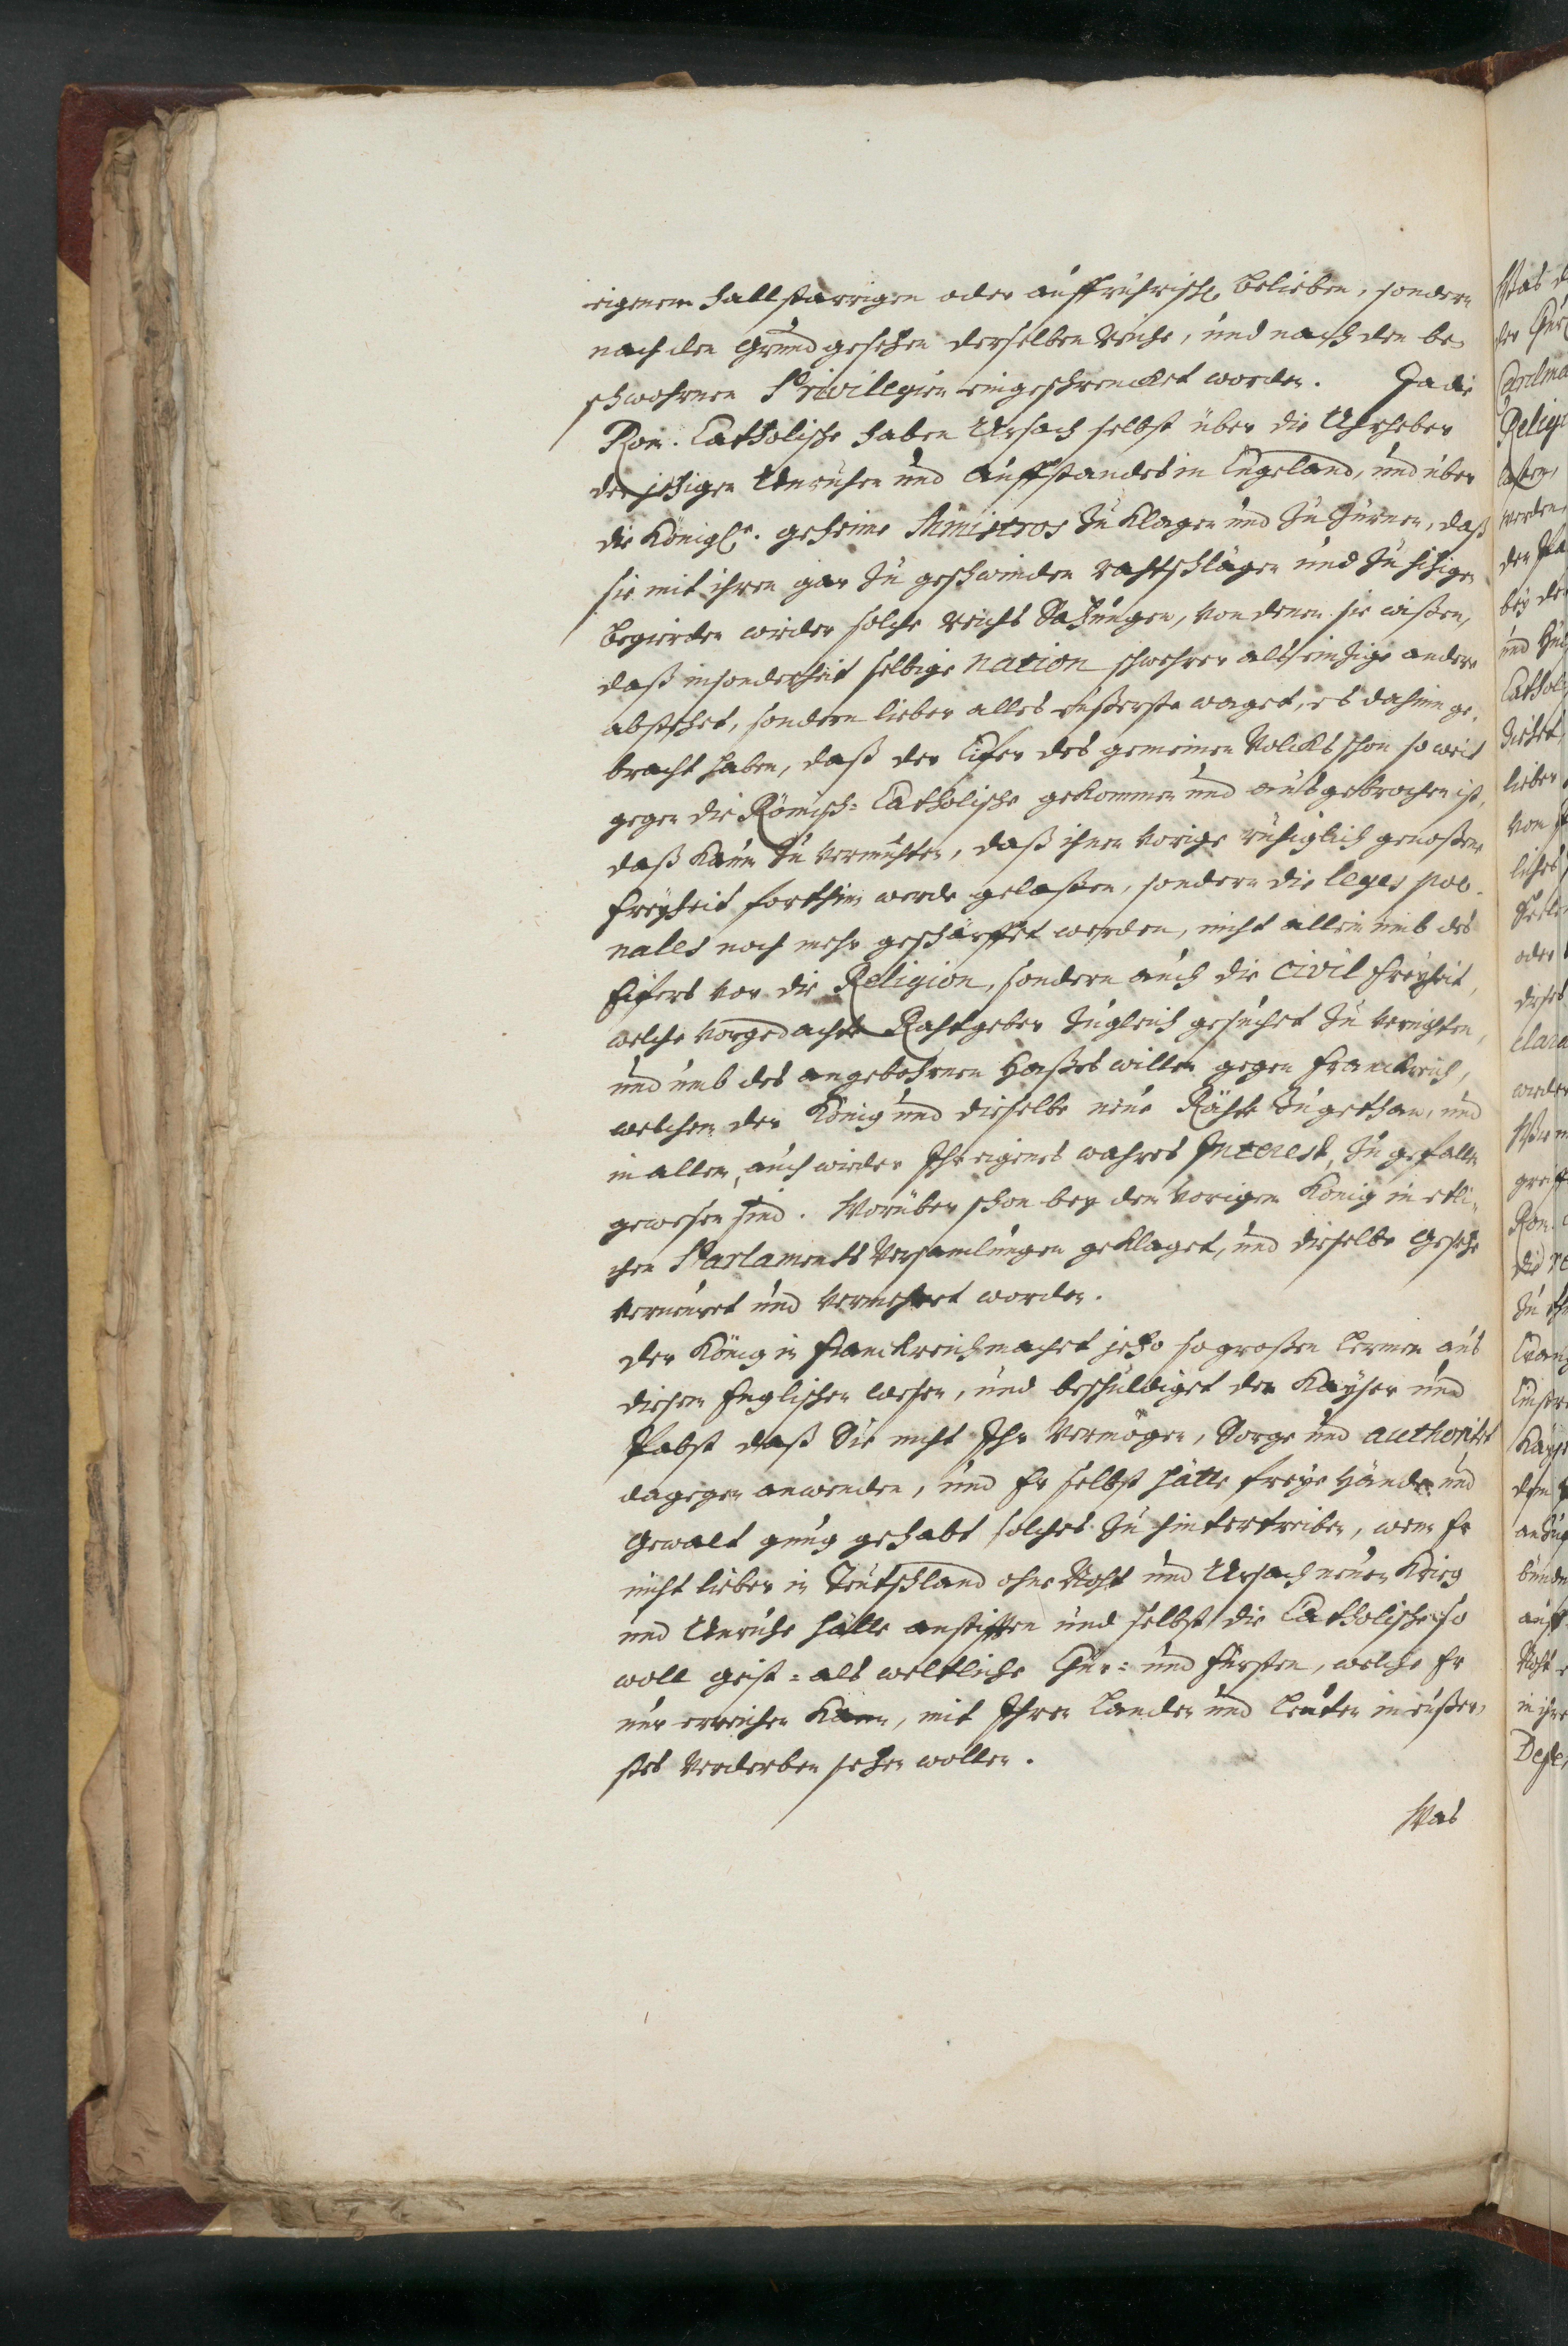 eigenem hallstarrigen oder auffrührisch. belieben, sondern
nach den Grundgesetzen derselben Reiche, und nach den be-
schwohrnen Privilegien eingeschrencket worden. Ja die
Röm. Catholische haben Ursach selbst über die Uhrheber
der jetzigen Unruhen und Auffstandes in Engeland, und über
die Königl. geheime Ministros zu klagen und zu zürnen, daß
sie mit ihren gar zu geschwinden rahtschlägen und zu hitzigen
begierden wieder solche Reichs Satzungen, von denen sie wißen,
daß insonderheit selbige nation schwehrer als einzige andere
abstehet, sondern lieber alles eußerste waget, es dahin ge-
bracht haben, daß der Eifer des gemeinen Volcks schon so weit
gegen die Römisch-Catholische gekommen und ausgebrochen ist,
daß kaum zu vermuhten, daß ihnen vorige ruhiglich genoßene
freyheit forthin werde gelaßen, sondern die leges poe-
nales noch mehr geschärffet werden, nicht allein umb des
Eifers vor die Religion, sondern auch die civil freyheit,
welche vorgedachte Rahtgeber zugleich gesuchet zu vernichten,
und umb des angebohrnen Haßes willen gegen Franckreich,
welchem der König und dieselbe neue Rähte zugethan, und
in allem, auch wieder Ihr eigenes wahres Interest, zu gefallen
gewesen sind. Worüber schon bey dem vorigen König in etli-
chen Parlaments Versamlungen geklaget, und dieselbe Gesetze
verneuret und vermehret worden.
Der König in Franckreich machet jetzo so großen lermen aus
diesem Englischen wesen, und beschuldiget den Kayser und
Pabst daß Sie nicht Ihr Vermögen, Sorge und authoritet
dagegen anwenden, und Er selbst hätte freye Hände und
Gewalt gnug gehabt solches zu hintertreiben, wenn Er
nicht lieber in Teutschland ohne Noht und Ursach neuen Krieg
und Unruhe hätte anstifften und selbst die Catholische so
woll geist- als weltliche Chur- und Fürsten, welche Er
nur erreichen kann, mit Ihren Landen und Leuten in eußer-
stes Verderben setzen wollen.
Was